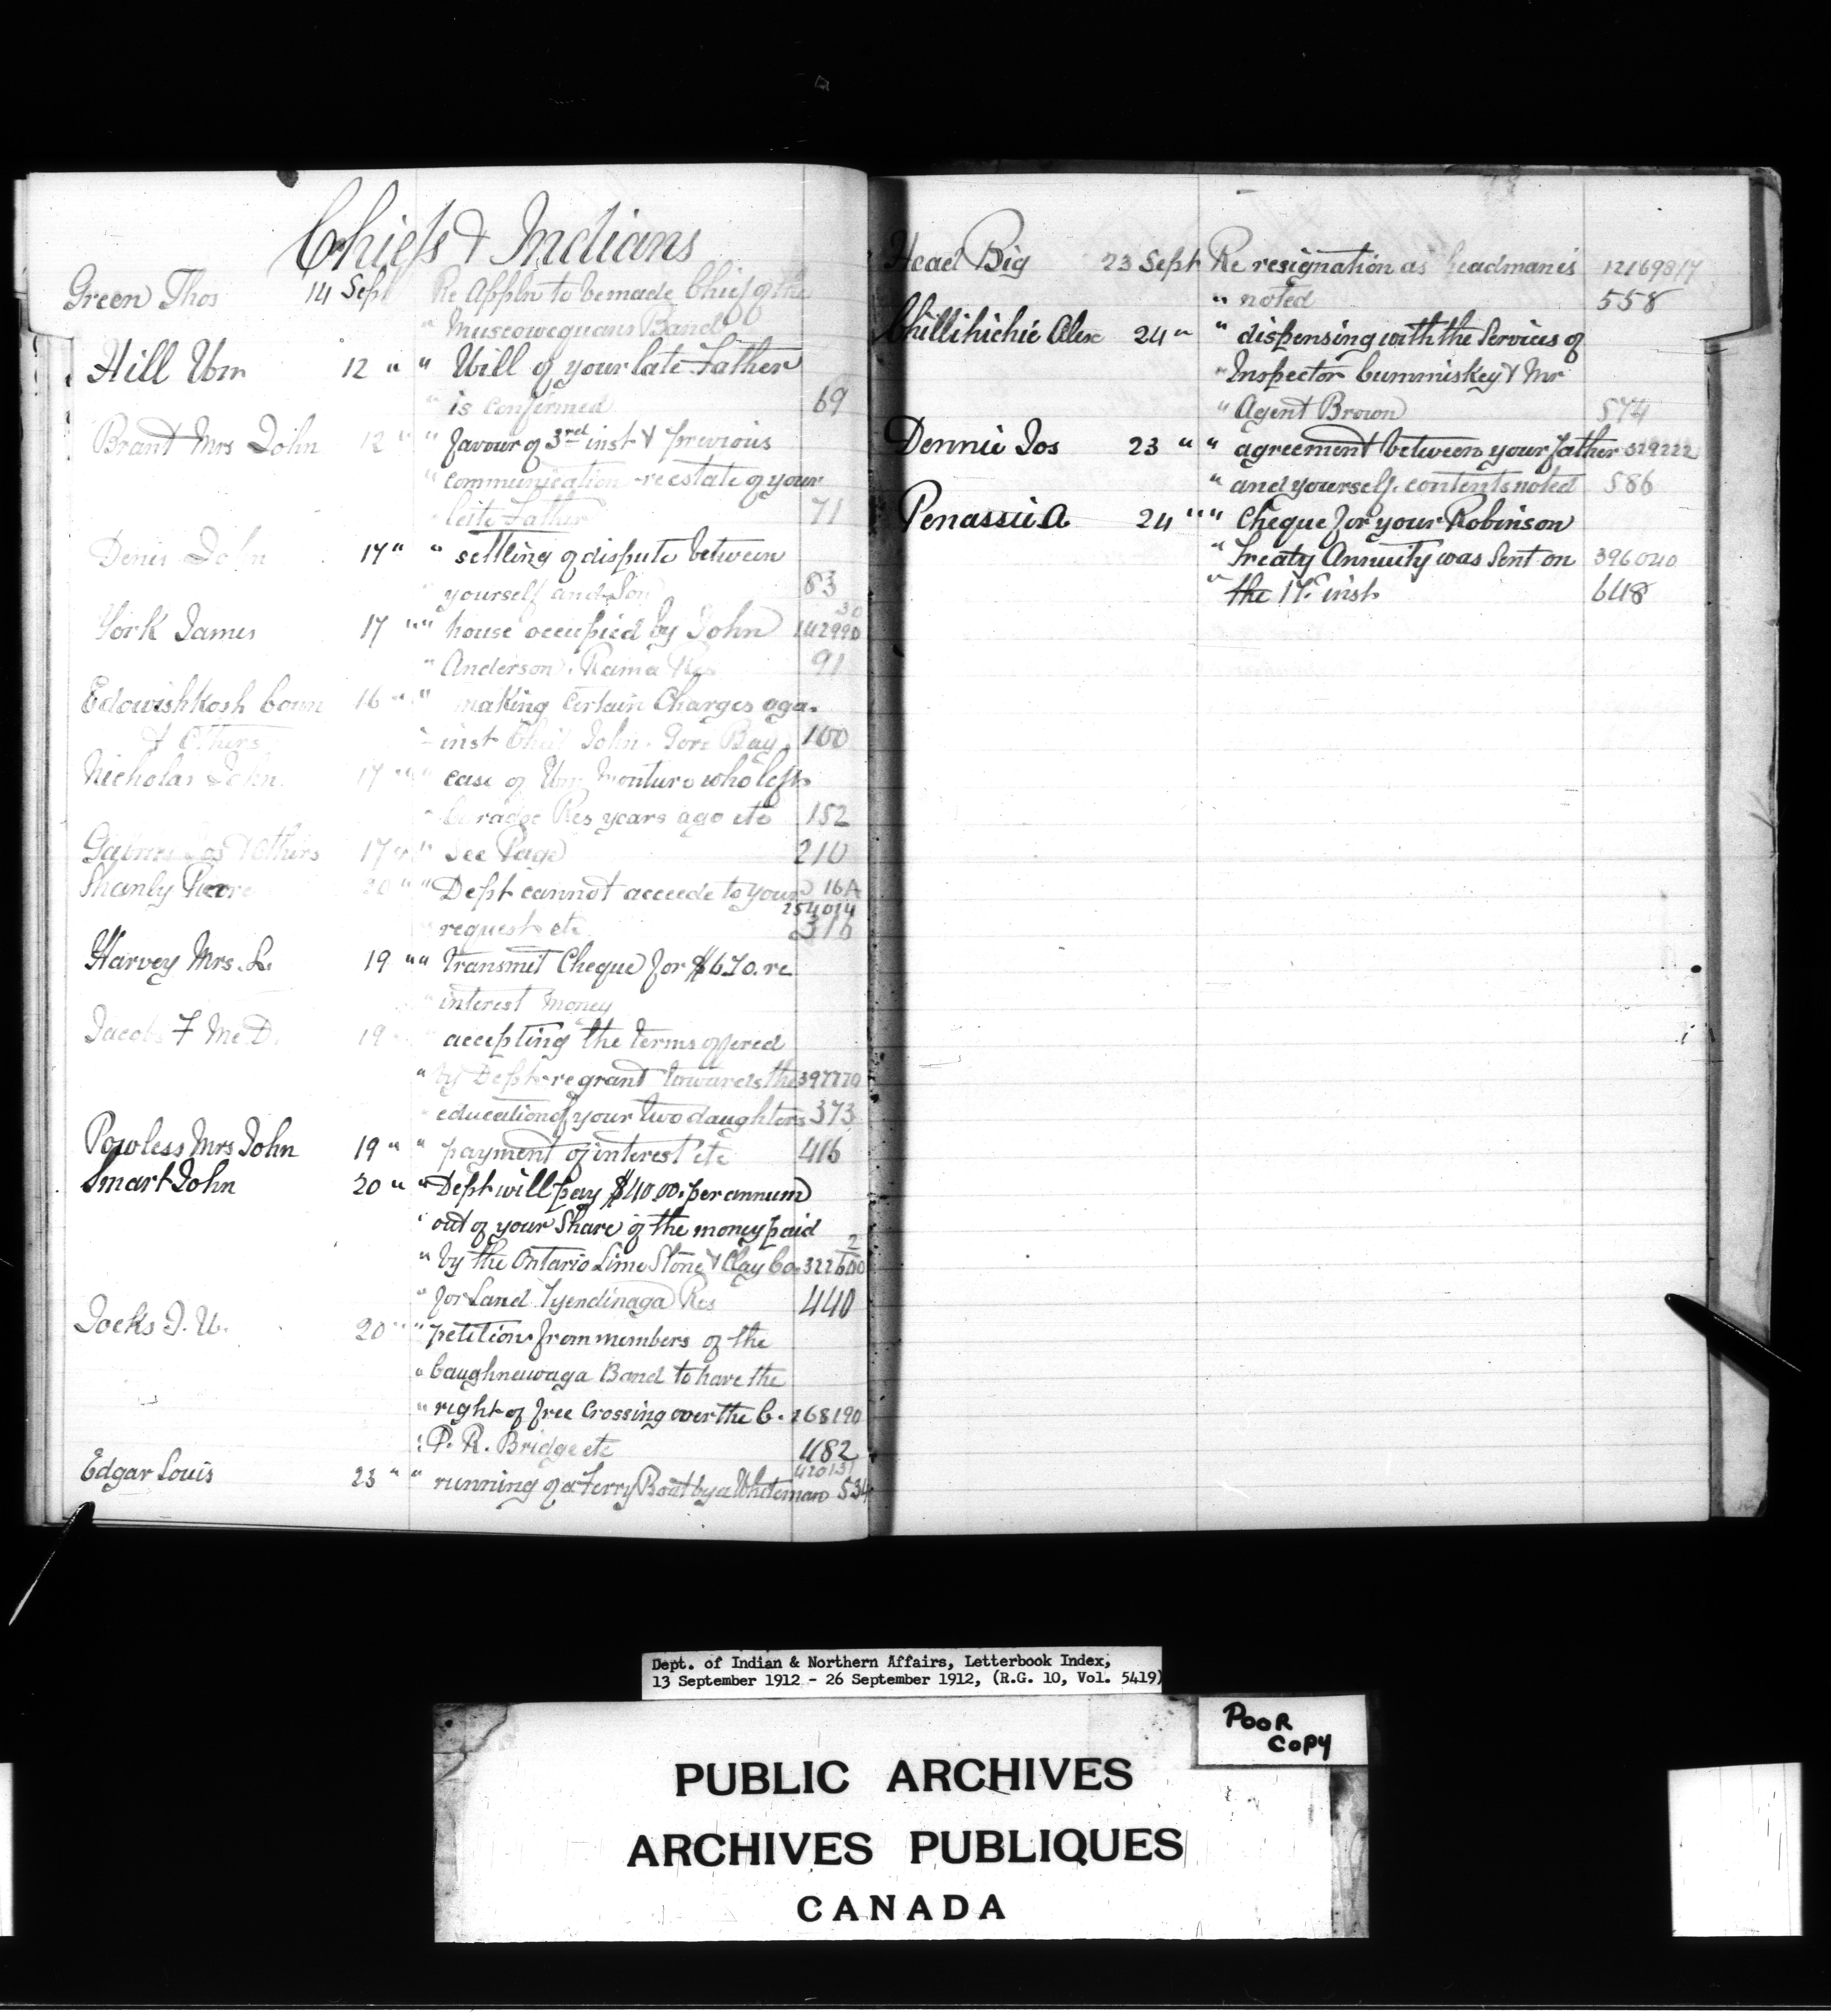 Chiefs & Indians
Green Thos 14 Sept Re Appln to be made Chief of the
" Muscowequans Band
Hill Wm 12 " " Will of your late Father
" is confirmed 69
Brant Mrs John 12 " " favour of 3rd inst & previous
" communication re estate of your
" late Father 71
Denis John 17 " " settling of dispute between
" yourself and Son 83
York James 17 " " house occupied by John 142990 30
" Anderson, Rama Res 91
Edowishkosh 16 " " making certain Charges aga-
& Others " inst Chief John. Gore Bay 100
Nicholas John 17 " " case of Wm Monture who left
" Res years ago etc 152
Jos & Others 17 " " See Page 210
Shanly 20 " " Dept cannot accede to your 16A
254014
" request etc 316
Harvey Mrs. L. 19 " " transmit Cheque for $6.70. re
" interest money
Jacobs F Mc D. 19 " " accepting the terms offered
" by Dept re grant towards the 397770
" education of your two daughters 373
Powless Mrs John 19 " " payment of interest etc 416
Smart John 20 " " Dept will pay $40.00. per annum
" out of your Share of the money paid
" by the Ontario Lime Stone & Clay Co. 322600 2
" for Land Tyendinaga Res 440
Jocks J. W. 20 " " petition from members of the
" Caughnawaga Band to have the
" right of free Crossing over the C. 268190
" P. R. Bridge etc 482
420131
Edgar Louis 23 " " running of a Ferry Boat by a Whiteman 534
Head Big 23 Sept Re resignation as headman is 121698/17
" noted 558
Chillihichie Alex 24 " " dispensing with the Services of
" Inspector Cummiskey & Mr
" Agent Brown 574
Dennie Jos 23 " " agreement between your father 329222
" and yourself. contents noted 586
Penassie A 24 " " Cheque for your Robinson
" Treaty Annuity was Sent on 396040
" the 17th inst. 648
Dept. of Indian & Northern Affairs, Letterbook Index,
13 September 1912 - 26 September 1912, (R.G. 10, Vol. 5419)
POOR
COPY
PUBLIC ARCHIVES
ARCHIVES PUBLIQUES
CANADA